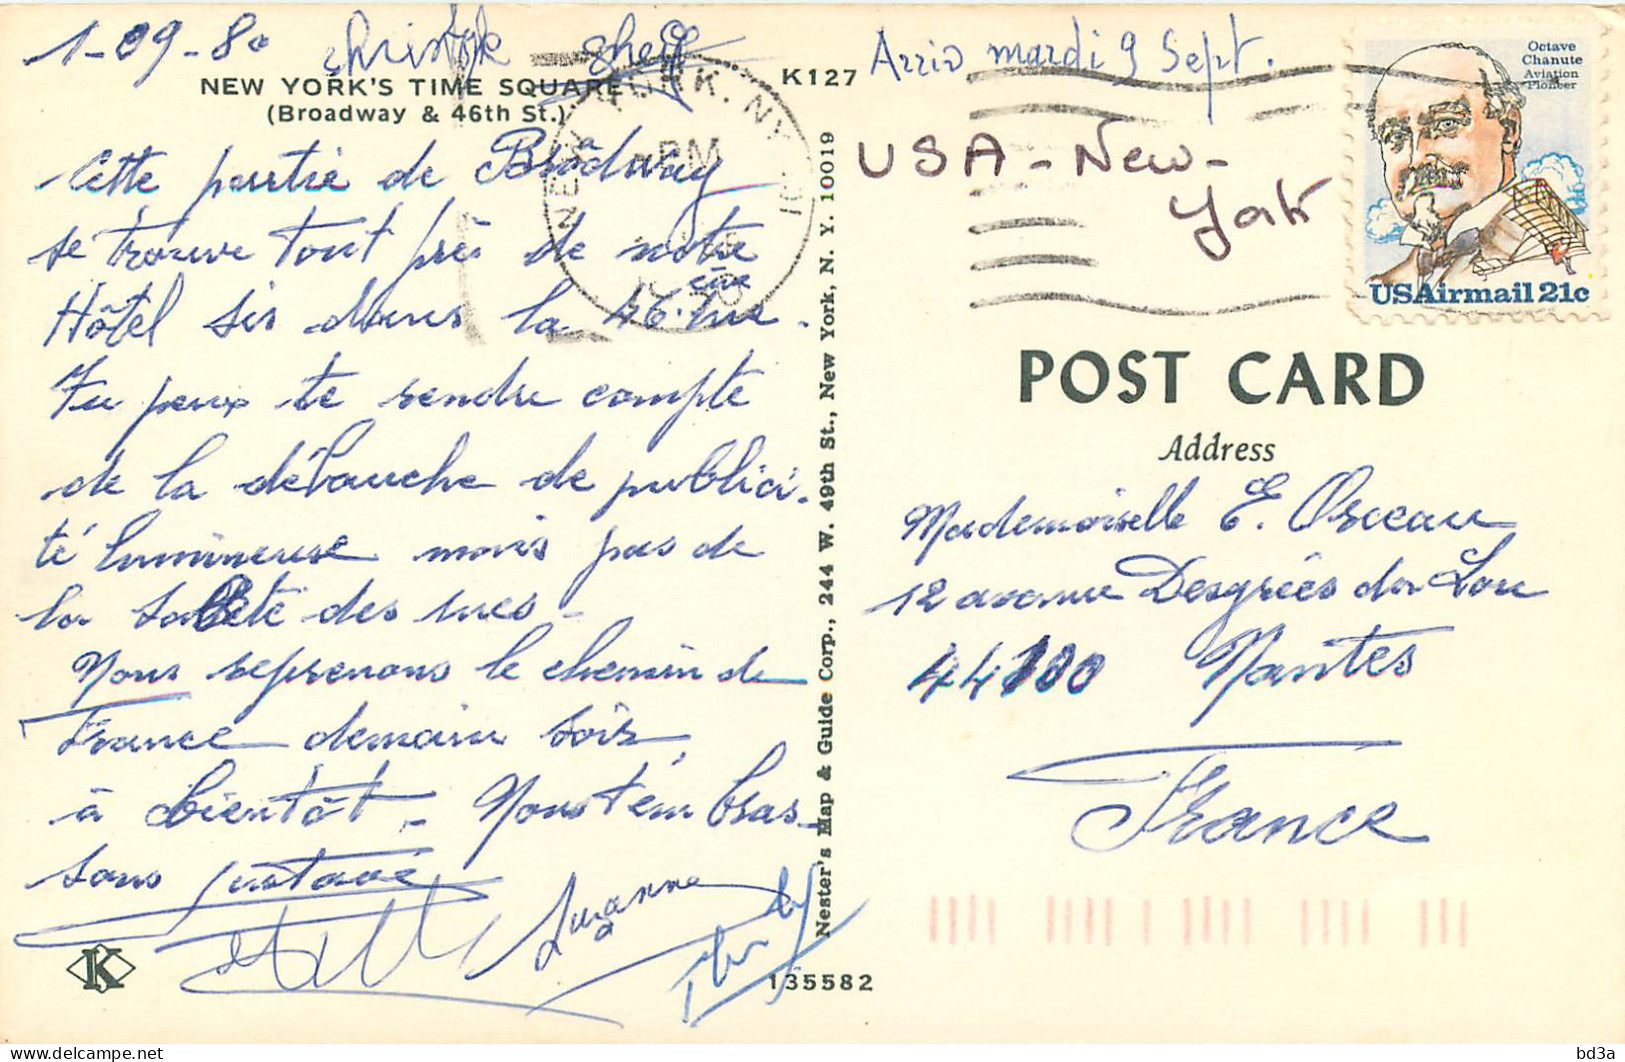 1-09-80
NEW YORK'S TIME SQUARE
(Broadway & 46th St.)
Cette partie de Brodway
se trouve tout près de notre
Hôtel sis dans la 46.ème rue.
Tu peux te rendre compte
de la débauche de publici-
té lumineuse mais pas de
la saleté des rues -
Nous reprenons le chemin de
France demain soir,
à bientôt - Nous t'embras-
sons Gustave
Suzanne
K
K127
NEW YORK, NY
PM
Nester's Map & Guide Corp., 244 W. 49th St., New York, N. Y. 10019
135582
Arriv mardi 9 Sept.
USA - New -
York
Octave
Chanute
Aviation
Pioneer
USAirmail 21c
POST CARD
Address
Mademoiselle E. Osceau
12 avenue Desgrées du Lou
44100 Nantes
France
bd3a
© delcampe.net